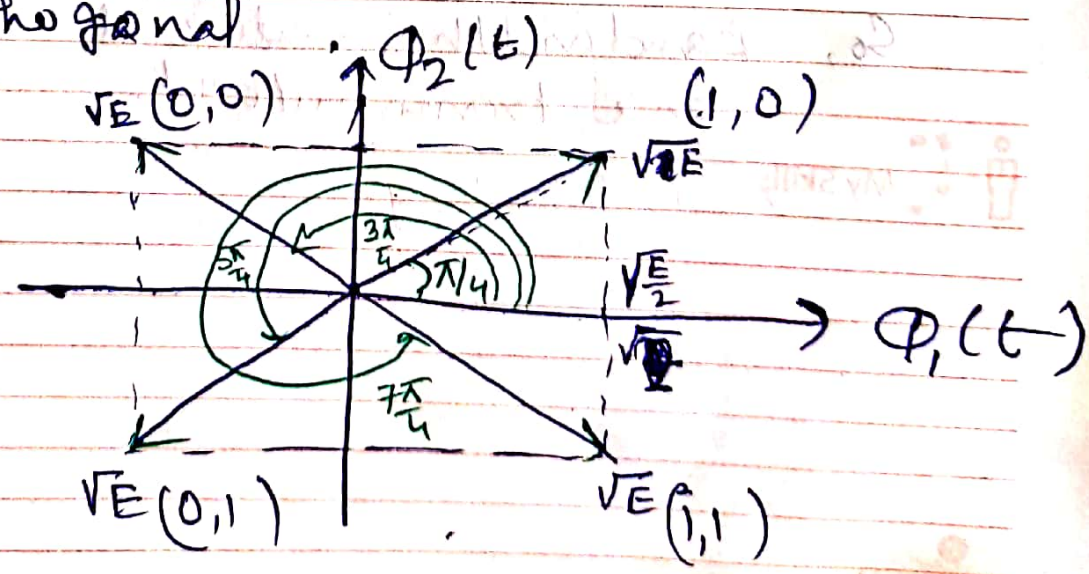 hogonal
φ₂(t)
√E (0,0)
(1,0)
√E
3π/4
5π/4
π/4
√E/2
φ₁(t)
7π/4
√E (0,1)
√E (1,1)